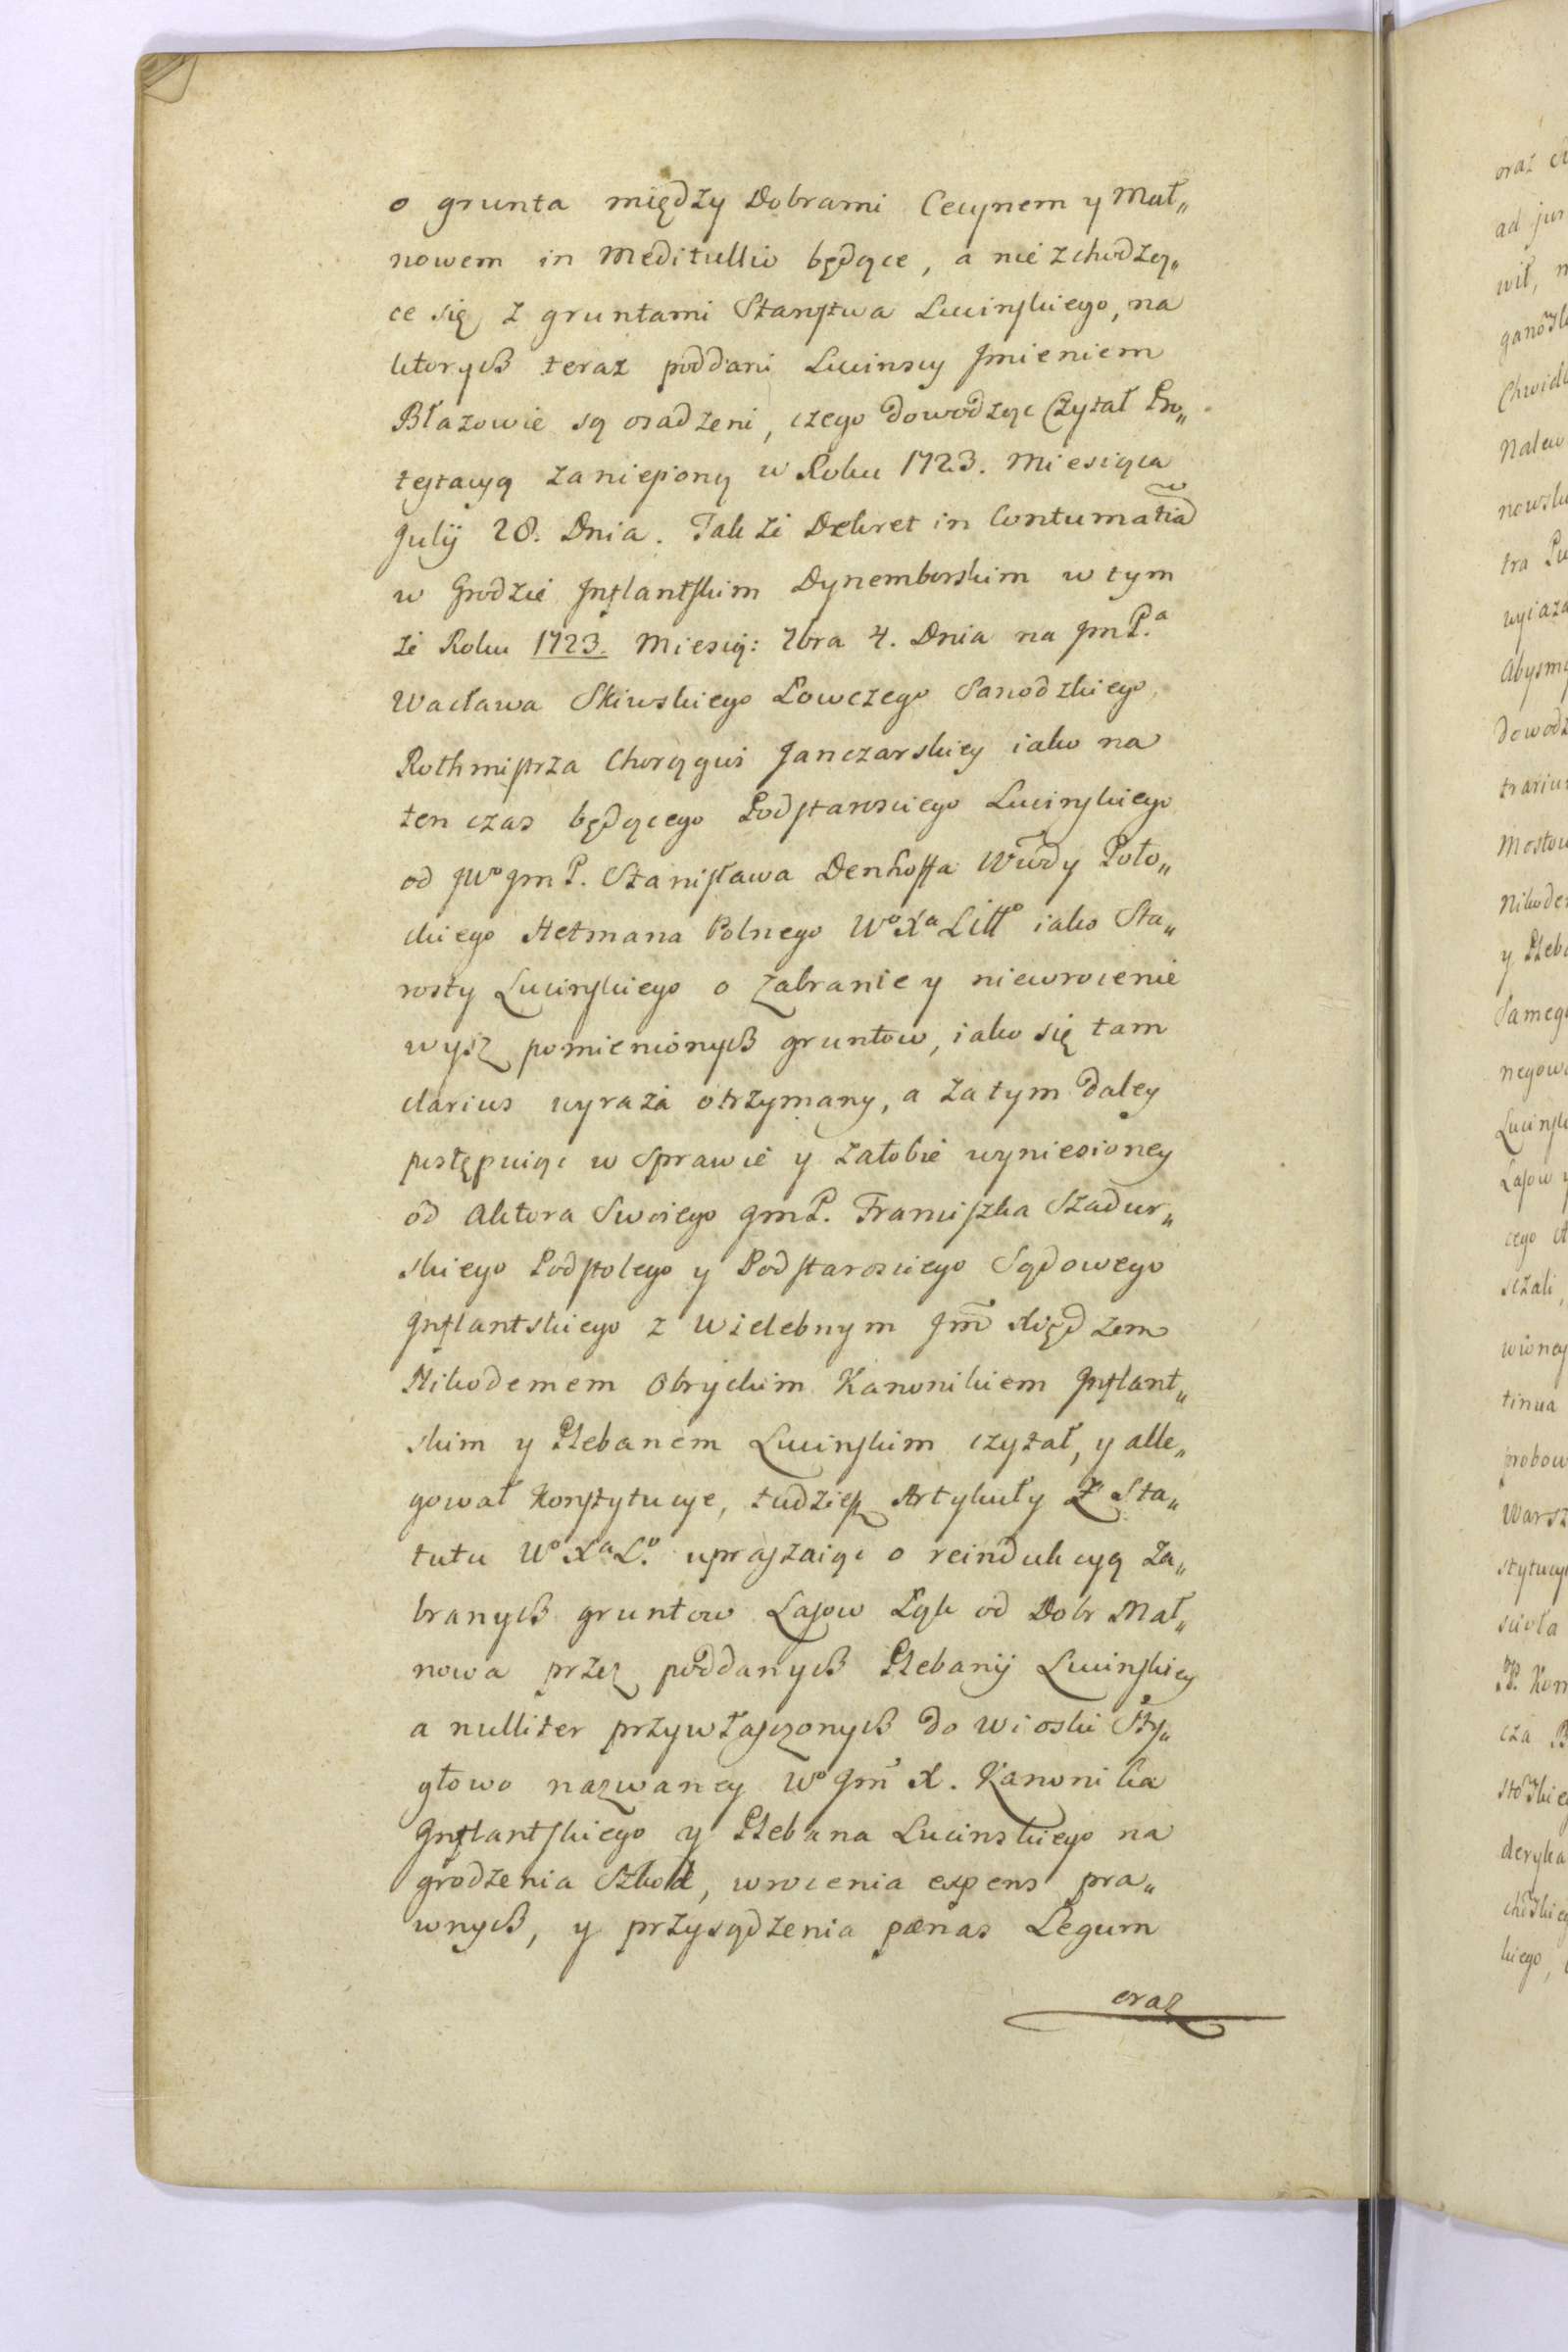 o grunta między Dobrami Cecynem y Mał„
nowem in Meditullio będące, a nie zchodzą„
ce się z gruntami Starstwa Lucinskiego, na
ktorych teraz poddani Lucinscy Jmieniem
Błazowie są osadzeni, czego dowodząc Czytał Pro„
testacyą zaniesioną w Roku 1723. Miesiąca
July 28. Dnia. Tak że Dekret in Contumatia
w Grodzie Inflantskim Dynemborskim w tym
że Roku 1723. Miesią: 7bra 4. Dnia na Jm P.ª
Wacława Skiwskiego Łowczego Sanodzkiego
Rothmistrza Chorągwi Janczarskiey iako na
ten czas będącego Podstarosciego Lucinskiego
od JWº Jm P. Stanisława Denhoffa Wwdy Poło„
ckiego Hetmana Polnego Wº Xª Littº iako Sta„
rosty Lucinskiego o zabranie y niewrocenie
wysz pomienionych gruntow, iako się tam
clarius wyraża otrzymany, a zatym daley
postępuiąc w Sprawie y żałobie wyniesioney
od Aktora Swoiego Jm P. Franciszka Szadur„
skiego Podstolego y Podstarosciego Sądowego
Inflantskiego z Wielebnym Jm Xiędzem
Nikodemem Obryckim Kanonikiem Inflant„
skim y Plebanem Lucinskim czytał, y alle„
gował Konstytucye, tudziesz Artykuły z Sta„
tutu Wº Xª Lº. upraszaiąc o reindukcyą za„
branych gruntow Lasow Łąk od Dobr Mał„
nowa przez poddanych Plebanij Lucinskiey
a nulliter przywłasczonych do wioski Sty„
głowo nazwaney Wº Jm X. Kanonika
Inflantskiego y Plebana Lucinskiego na
grodzenia Szkod, wrocenia expens pra„
wnych, y przysądzenia pænas Legum
oraz